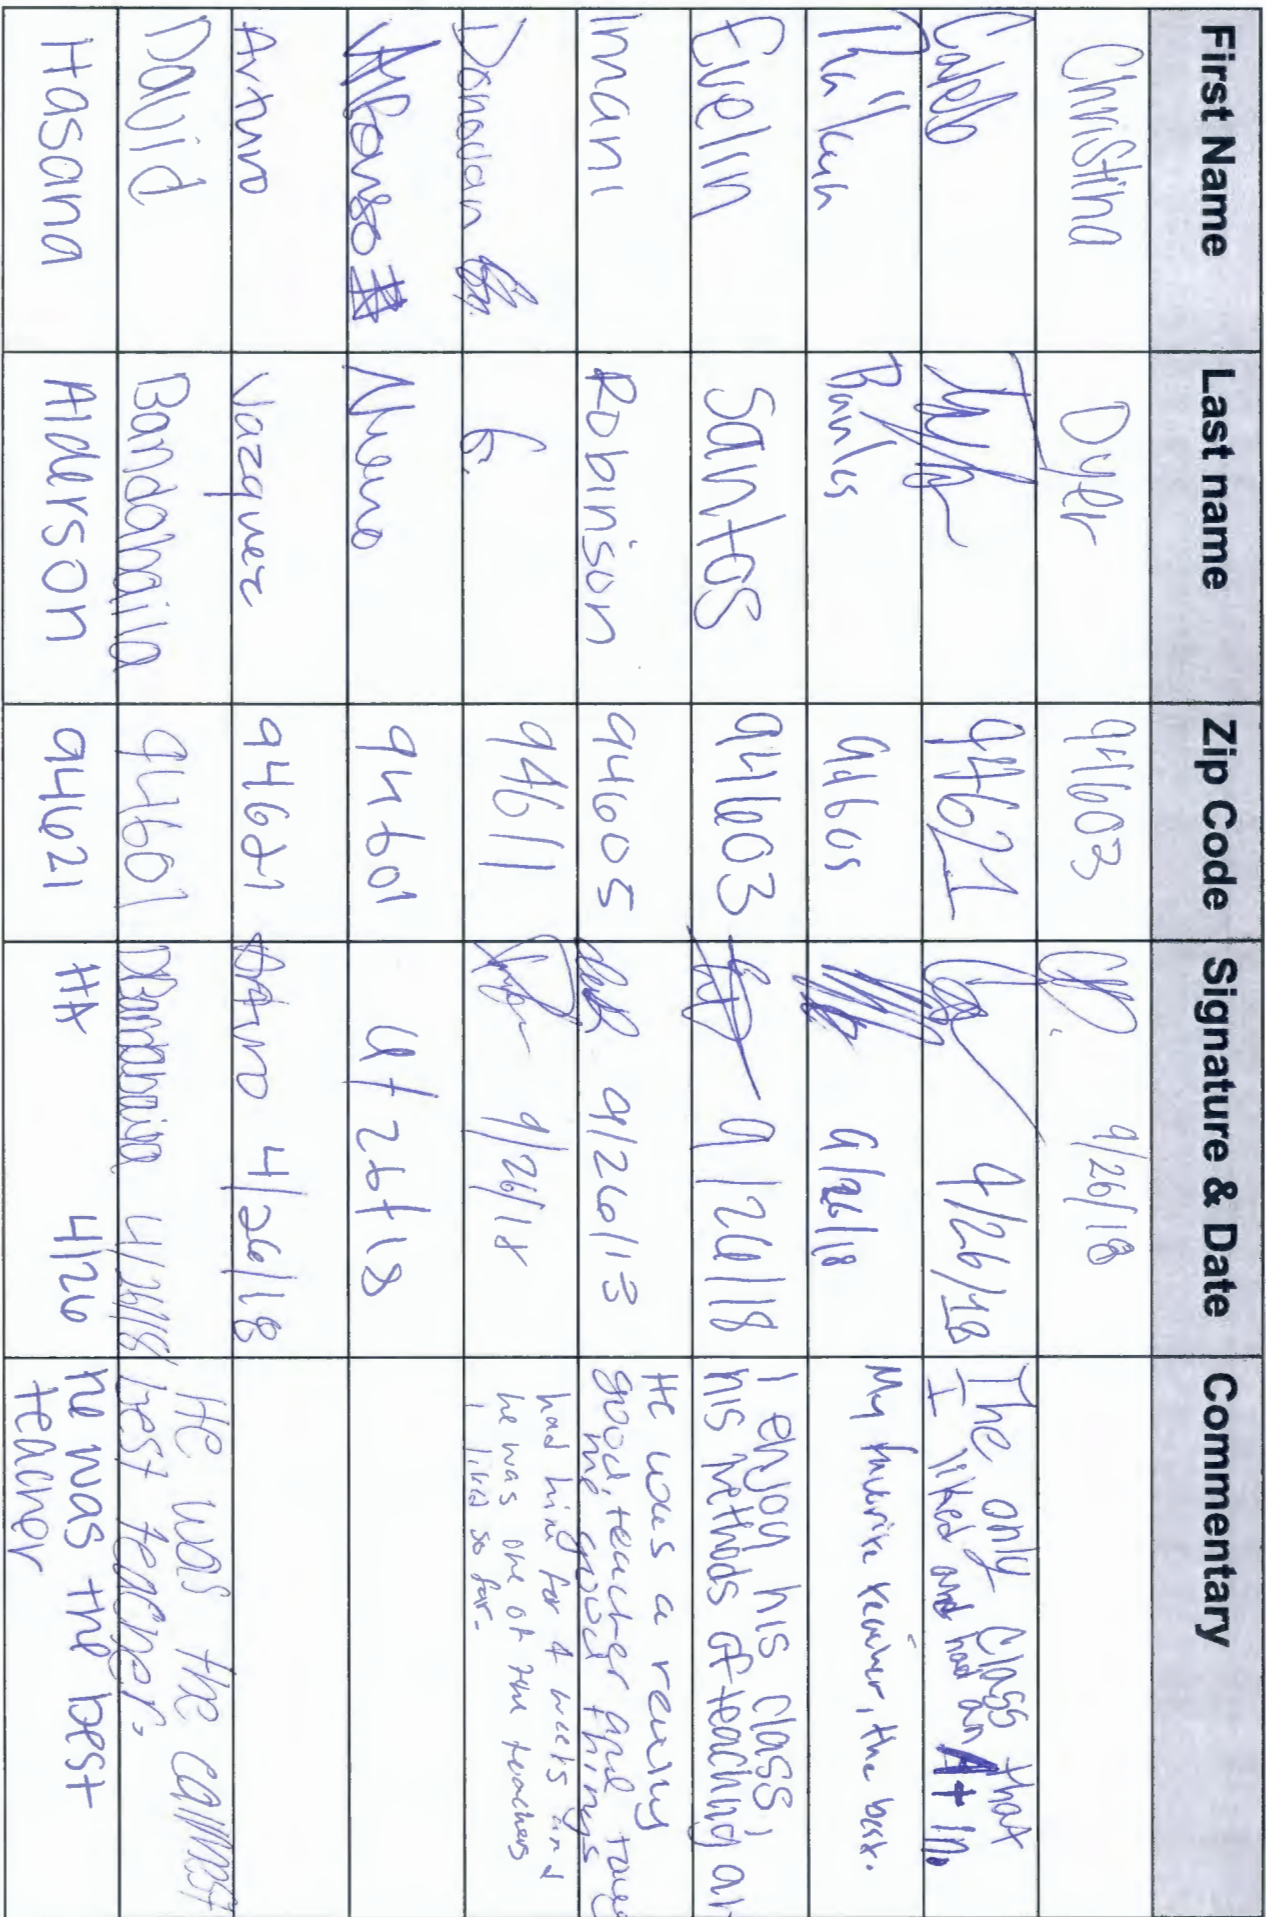 First Name Last name Zip Code Signature & Date Commentary
Christina Dyer 94603 9/26/18
Caleb 94621 9/26/18 The only Class that
I liked and had an A+ in.
94605 9/26/18 My favorite teacher, the best.
Evelin Santos 94603 9/26/18 I enjoy his class,
his methods of teaching
Imani Robinison 94605 9/26/13 He was a really
good, teacher and
me good things
Donovan G. 94611 9/26/18 had him for 4 weeks and
he was one of the teachers
I liked so far.
Alfonso 94601 4/26/18
Arturo Vazquez 94621 Arturo 4/26/18
David Bandabaila 94601 DBandabaila 4/26/18 He was the calmest
best teacher.
Hasana Alderson 94621 HA 4/26 he was the best
teacher